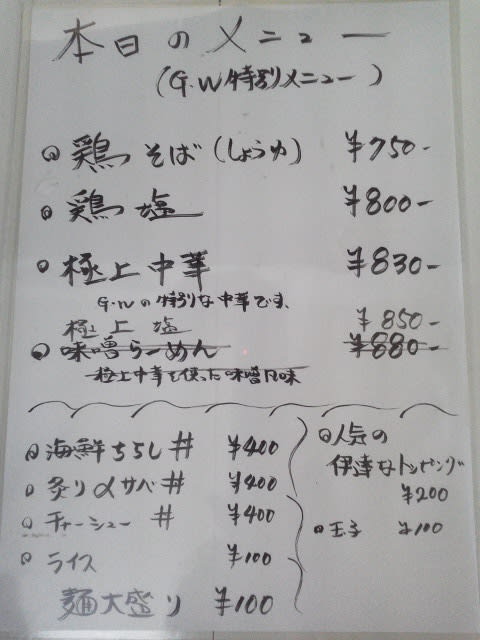 本日のメニュー
(G.W特別メニュー)
鶏そば(しょうゆ) ¥750-
鶏塩 ¥800-
極上中華 ¥830-
G.Wの特別な中華です、
極上塩 ¥850-
味噌らーめん ¥880-
極上中華を使った味噌風味
海鮮ちらし丼 ¥400
炙り〆サバ丼 ¥400
チャーシュー丼 ¥400
ライス ¥100
麺大盛り ¥100
人気の
伊達なトッピング
¥200
玉子 ¥100